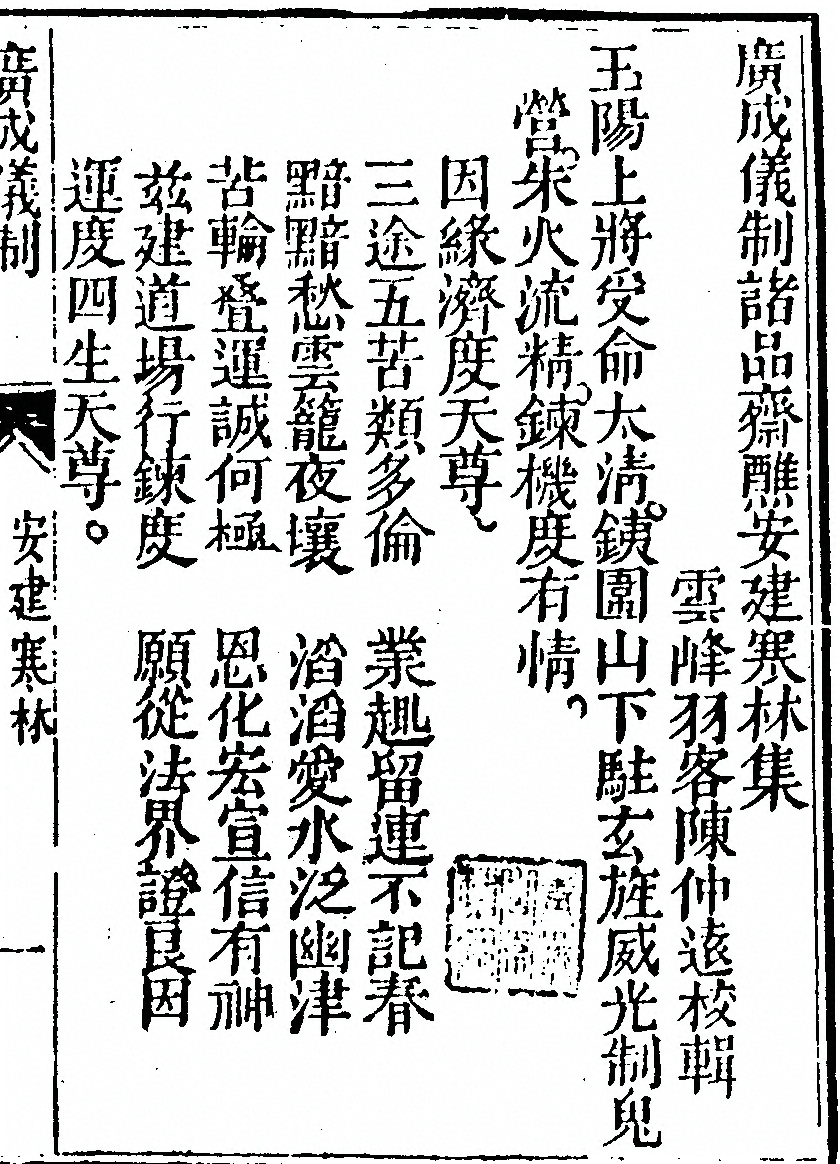 廣成儀制諸品齋醮安建寒林集
雲峰羽客陳仲遠校輯
玉陽上將受命太淸。鐵圍山下駐玄旌威光制鬼
營。朱火流精。鍊機度有情。
因緣濟度天尊、
三途五苦類多倫　業趣留連不記春
黯黯愁雲籠夜壤　滔滔愛水泛幽津
苦輪叠運誠何極　恩化宏宣信有神
兹建道場行鍊度　願從法界證良因
運度四生天尊。
廣成儀制　安建寒林　一